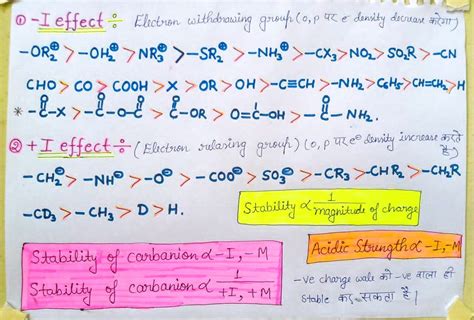 ① -I effect ÷ Electron withdrawing group (o, p पर e⁻ density decrease करेगा)
-OR₂⊕ > -OH₂⊕ > NR₃⊕ > -SR₂⊕ > -NH₃⊕ > -CX₃ > NO₂ > SO₂R > -CN
CHO > CO > COOH > X > OR > OH > -C≡CH > -NH₂ > C₆H₅ > CH=CH₂ > H
* -C(=O)-X > -C(=O)-O-C(=O)- > -C(=O)-OR > O=C-OH > -C(=O)-NH₂.
② +I effect ÷ (Electron relasing group) (o, p पर e⊖ density increase करते है)
-CH₂⊖ > -NH⊖ > -O⊖ > -COO⊖ > SO₃⊖ > -CR₃ > -CHR₂ > -CH₂R
-CD₃ > -CH₃ > D > H.
Stability ∝ 1/magnitude of charge
Stability of carbanion ∝ -I, -M
Stability of carbanion ∝ 1/+I, +M
Acidic Strength ∝ -I, -M
-ve charge wale को -ve वाला ही
stable कर सकता है।